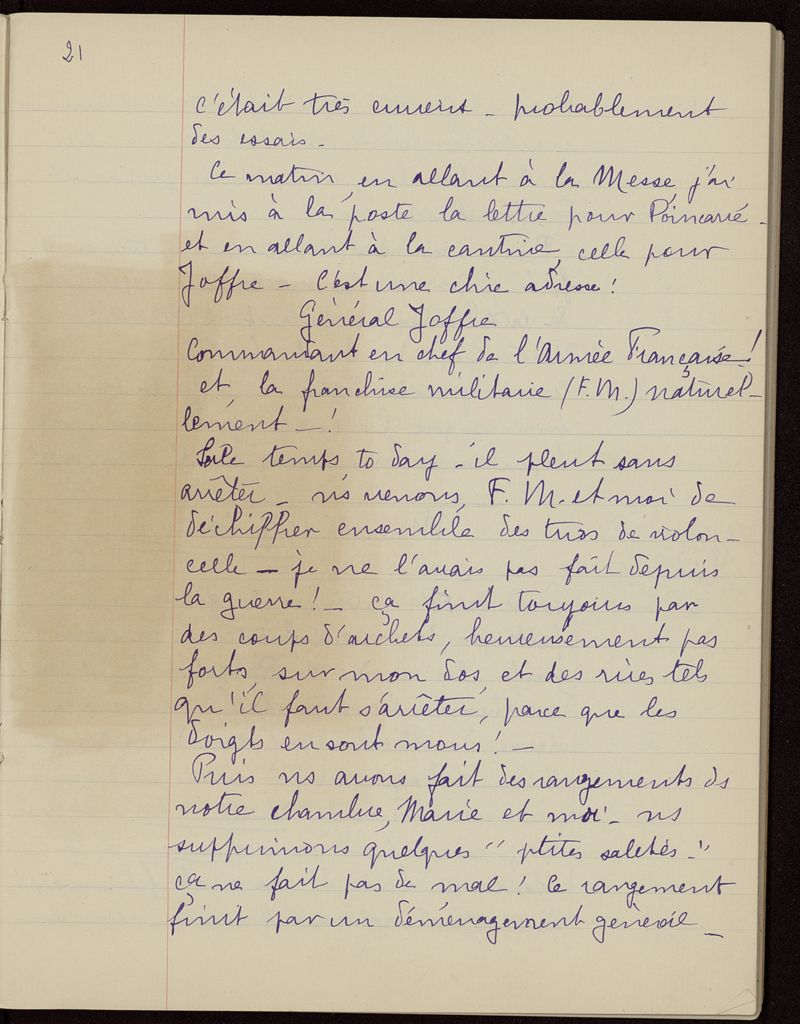 21
c'était très curieux - probablement
des essais -
Ce matin, en allant à la Messe, j'ai
mis à la poste la lettre pour Poincaré -
et en allant à la cantine, celle pour
Joffre - C'est une chic adresse !
Général Joffre
Commandant en chef de l'Armée Française !
et la franchise militaire (F.M.) naturel-
lement - !
Sale temps to day - il pleut sans
arrêter - ns venons, F. M. et moi de
déchiffrer ensemble des trios de violon-
celle - je ne l'avais pas fait depuis
la guerre ! - ça finit toujours par
des coups d'archets, heureusement pas
forts, sur mon dos, et des rires tels
qu'il faut s'arrêter, parce que les
doigts en sont mous ! -
Puis ns avons fait des rangements ds
notre chambre, Marie et moi - ns
supprimons quelques " ptites saletés - "
ça ne fait pas de mal ! Ce rangement
finit par un déménagement général -